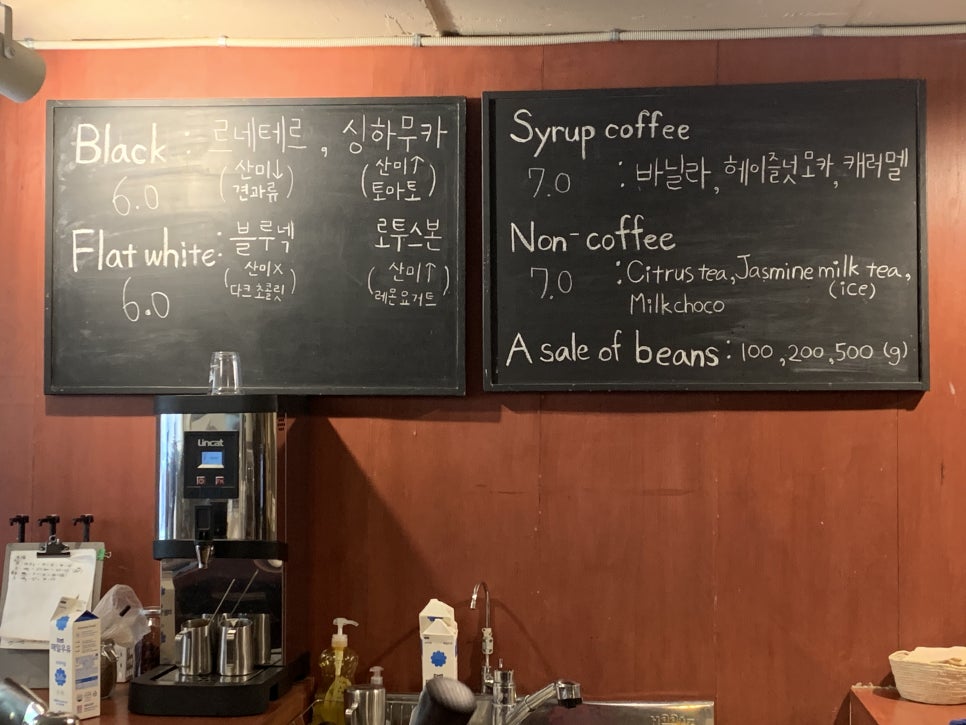 Black : 르네테르 , 싱하무카
6.0 (산미↓ 견과류) (산미↑ 토마토)
Flat white: 블루넥 로투스본
6.0 (산미x 다크초콜릿) (산미↑ 레몬요거트)
Syrup coffee
7.0 : 바닐라, 헤이즐넛모카, 캐러멜
Non-coffee
7.0 : Citrus tea, Jasmine milk tea,
(ice)
Milk choco
A sale of beans : 100 ,200,500 (g)
Lincat
매일우유